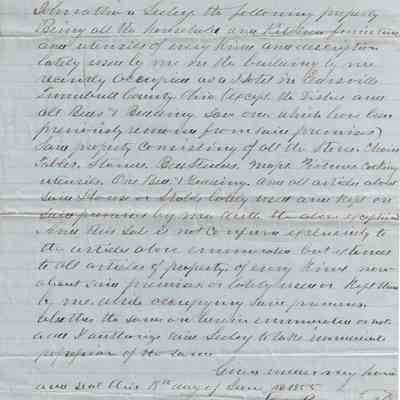 Johnathan Seeley the following property
Being all the household and Kitchen furniture
and utensils of every kind and description
lately used by me in the building by me
recently occupied as a Hotel in
Trumbull County Ohio (except the Dishes and
all Beds & Bedding Save one which have been
previously removed from said premises)
Said property consisting of all the Stoves Chairs
Tables, Stands, Bedsteads, Maps Kitchen Cooking
utensils, One Bed & Bedding and all articles about
Said House or lately used and kept on
Said premises by me with the above exception
And this Sale is not confined exclusively to
the articles above enumerated but extends
to all articles of property of every kind now
about Said premises or lately used or Kept there
by me while occupying Said premises
whether the same are herein enumerated or not
and I authorize said Seeley to take immediate
possession of the same
Given under my hand
and seal this 8th day of 1855